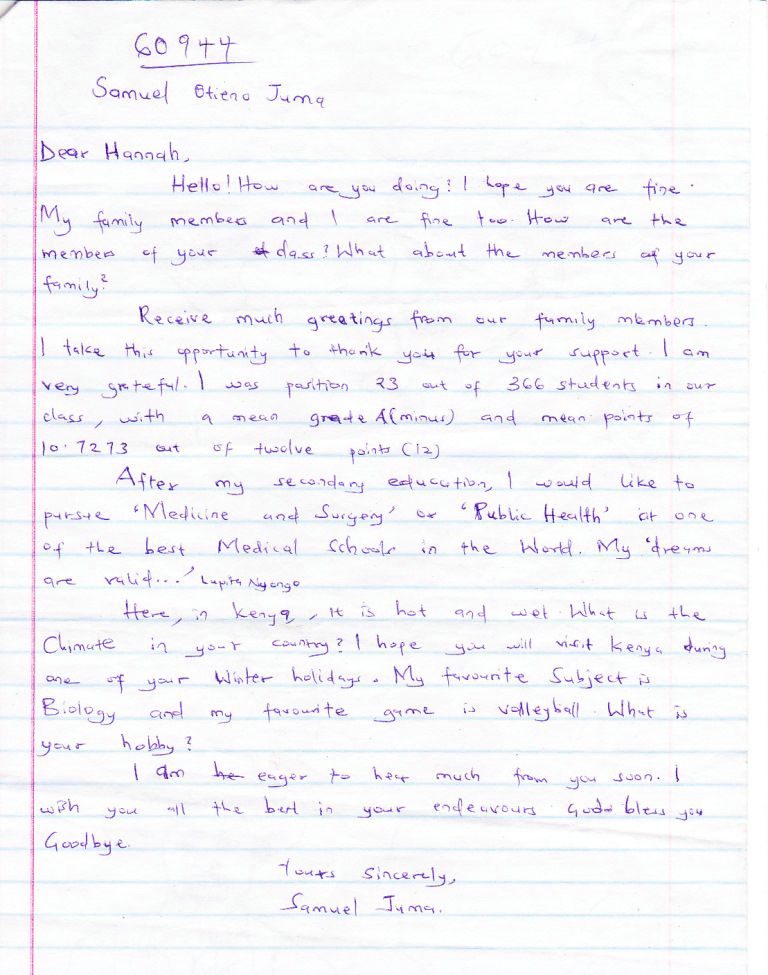 60944
Samuel Otieno Juma
Dear Hannah,
Hello! How are you doing? I hope you are fine.
My family members and I are fine too. How are the
members of your class? What about the members of your
family?
Receive much greetings from our family members.
I take this opportunity to thank you for your support. I am
very grateful. I was position 23 out of 366 students in our
class, with a mean grade A(minus) and mean points of
10.7273 out of twelve points (12)
After my secondary education, I would like to
pursue 'Medicine and Surgery' or 'Public Health' at one
of the best Medical Schools in the World. My 'dreams
are valid...' Lupita Nyongo
Here, in Kenya, it is hot and wet. What is the
Climate in your country? I hope you will visit Kenya during
one of your Winter holidays. My favourite Subject is
Biology and my favourite game is volleyball. What is
your hobby?
I am eager to hear much from you soon. I
wish you all the best in your endeavours. God bless you
Goodbye.
Yours Sincerely,
Samuel Juma.